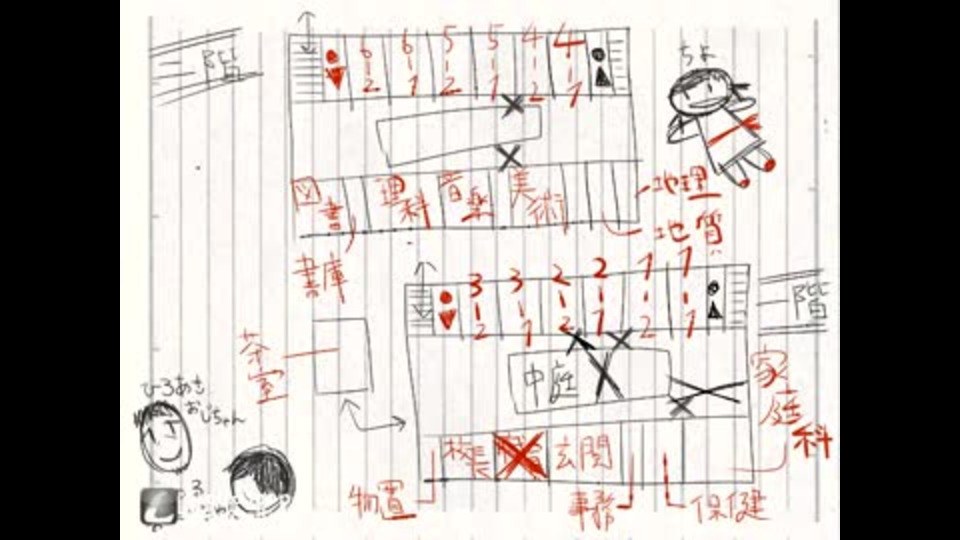 三階
6-2 6-1 5-2 5-1 4-2 4-1
ちよ
図書 理科 音楽 美術
地理
地質
書庫
3-2 3-1 2-2 2-1 1-2 1-1
二階
茶室
中庭
家庭科
ひろあき
おじちゃん
校長 玄関
物置 事務 保健